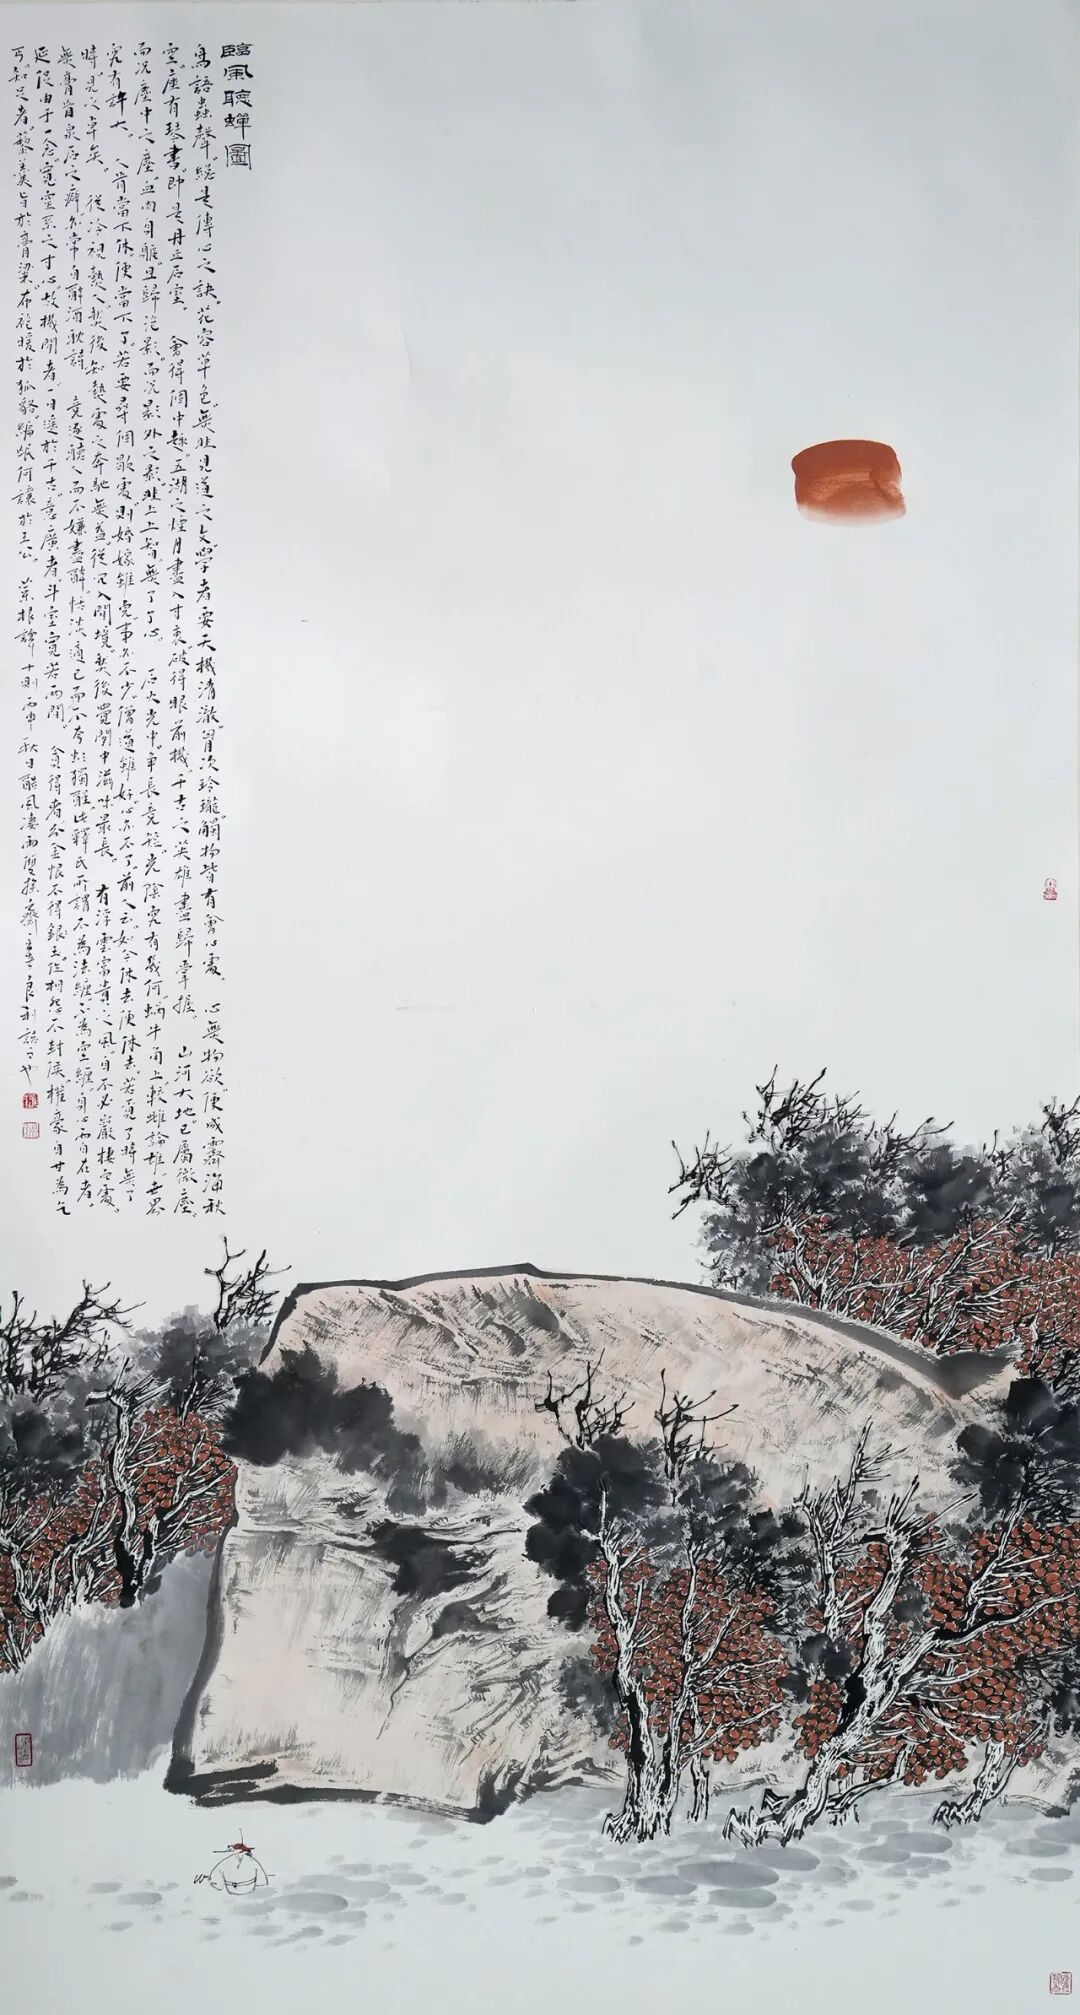 臨風聽蟬圖
鳥語蟲聲總是傳心之訣花容草色無非見道之文學者要天機清澈胷次玲瓏觸物皆有會心處 心無物欲便成霽海秋
空座有琴書即是丹丘石室 會得個中趣五湖之煙月盡入寸裏破得眼前機千古之英雄盡歸掌握 山河大地已屬微塵
而況塵中之塵血肉身軀且歸泡影而況影外之影非上上智無了了心 石火光中爭長競短光陰究有幾何蝸牛角上較雌論雄世界
究有許大 人肯當下休便當下了若要尋個歇處則婚嫁雖完事亦不少僧道雖好心亦不了前人云如今休去便休去若覓了時無了
時見之卓矣 從冷視熱人然後知熱處之奔馳無益從冗入閒境然後覺閒中滋味最長 有浮雲富貴之風而不必巖棲穴處
無膏肓泉石之癖亦常自醉酒耽詩 競逐聽人而不嫌盡醉恬淡適己而不夸獨醒此釋氏所謂不為法纏不為空纏身心兩自在者
延促由于一念寬窄系之寸心故機閒者一日遙於千古意廣者斗室寬若兩間 貪得者分金恨不得銀玉位相怨不封侯權豪自甘為乞
丐知足者藜羹旨於膏粱布袍暖於狐貉編氓何讓於王公 菜根譚十則丙申秋日酷風淒雨齋主良利誌之也